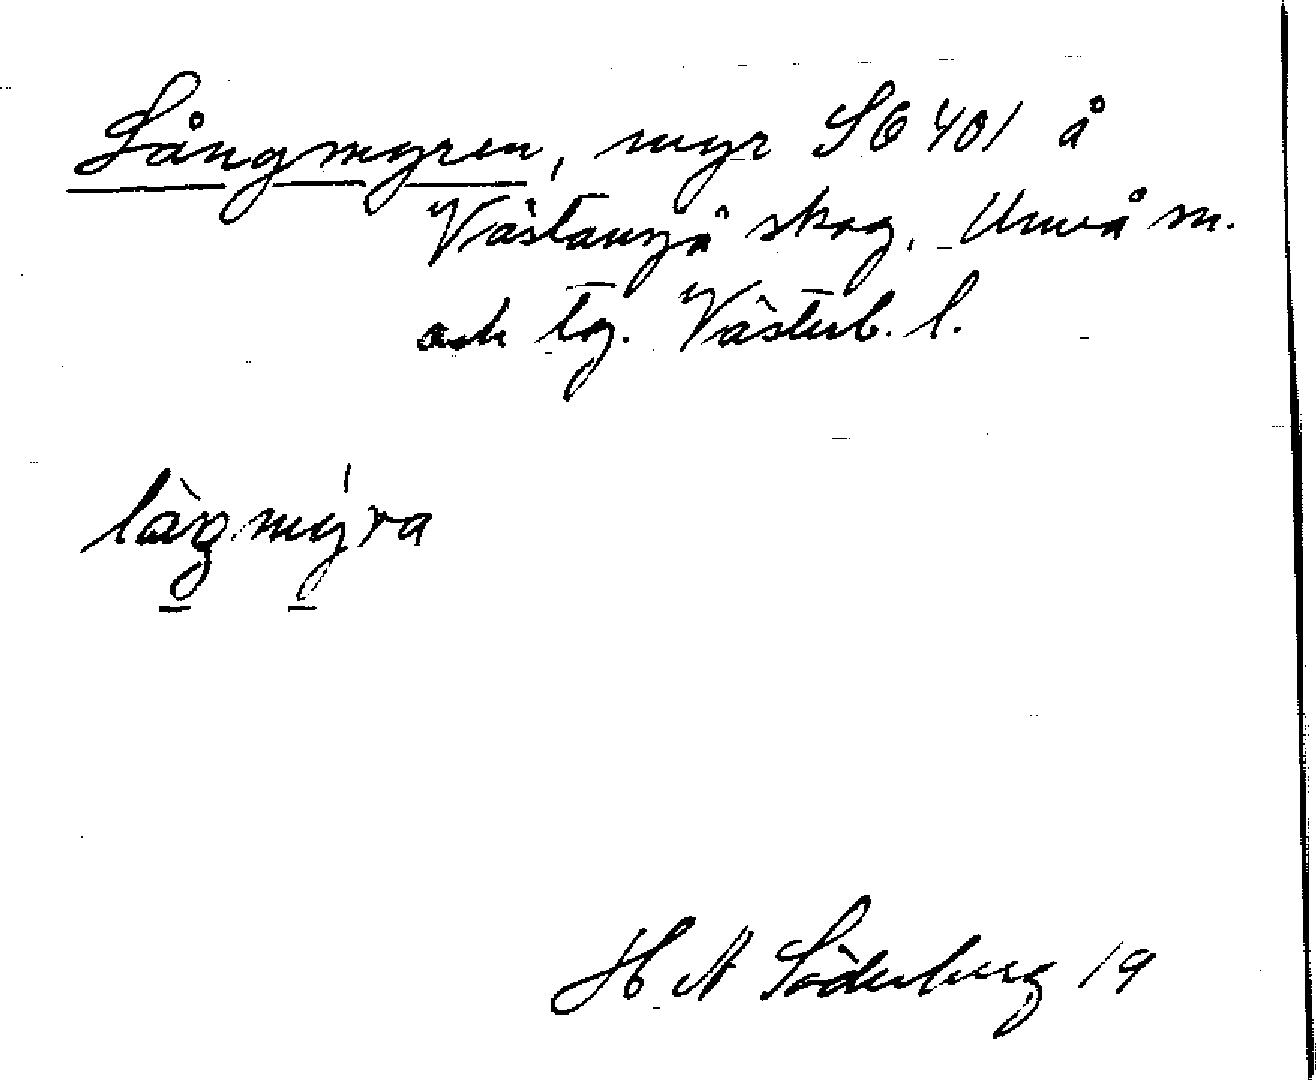 Långmyren, myr SG 401 å
Västansjö skog. Umeå sn.
och tg. Västerb. l.
làŋmýra
H N Söderberg 19